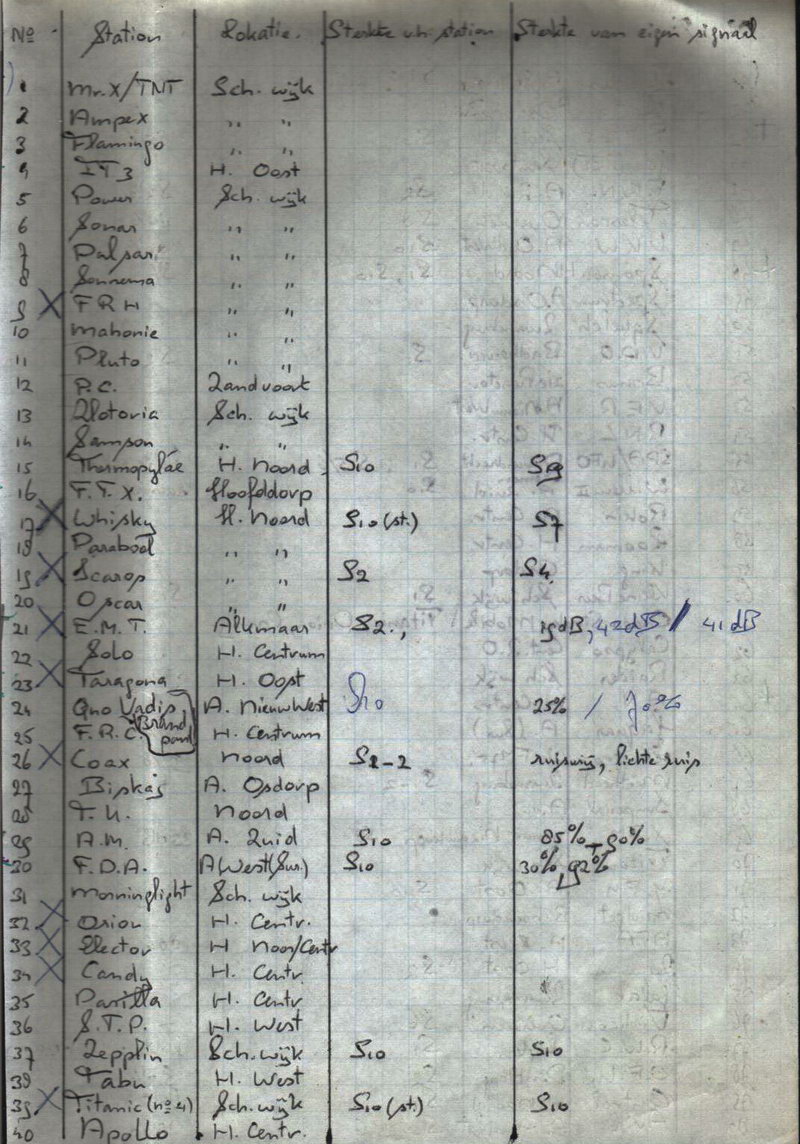 No Station Lokatie. Sterkte v.h. station Sterkte van eigen signaal
1 Mr. X/TNT Sch. wijk
2 Ampex ,, ,,
3 Flamingo ,, ,,
4 IT3 H. Oost
5 Power Sch. wijk
6 Sonar ,, ,,
7 Pulsar ,, ,,
8 Sonnema ,, ,,
9 X F R H ,, ,,
10 Mahonie ,, ,,
11 Pluto ,, ,,
12 P.C. Zandvoort
13 Zlotoria Sch. wijk
14 Sampson ,, ,,
15 Thermopylae H. Noord S10 S9
16 F.T.X. Hoofddorp
17 X Whisky H. Noord S10 (st.) S7
18 ,, ,,
19 X Scarop ,, ,, S2 S4
20 Oscar ,, ,,
21 X E.M.T. Alkmaar S2., 19dB, 42dB / 41dB
22 Solo H. Centrum
23 X Taragona H. Oost S10
24 Quo Vadis A. Nieuw West 25% / 70%
Brand
25 F.R.C. H. Centrum
26 X Coax Noord S1-2 lichte ruis
27 A. Osdorp
28 Noord
29 A.M. A. Zuid S10 85% + 90%
30 F.D.A. A West (Sur.) S10 30%, 92%
31 Morninglight Sch. wijk
32 X Orion H. Centr.
33 X Elector H Noor/Centr
34 X Candy H. Centr
35 H. Centr
36 S.T.P. H. West
37 Zepplin Sch. wijk S10 S10
38 Tabu H. West
39 X Titanic (no 4) Sch. wijk S10 (st.) S10
40 Apollo H. Centr.